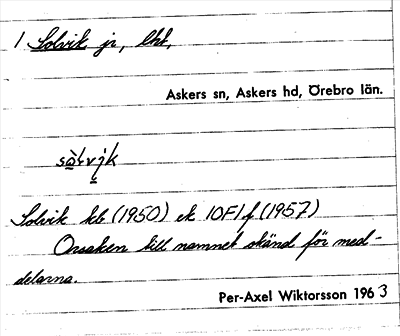 1 Solvik, jr, lht,
Askers sn, Askers hd, Örebro län.
sò̲lvi̲k
Solvik kb (1950) ek 10F1f (1957)
Orsaken till namnet okänd för med-
delarna.
Per-Axel Wiktorsson 1963